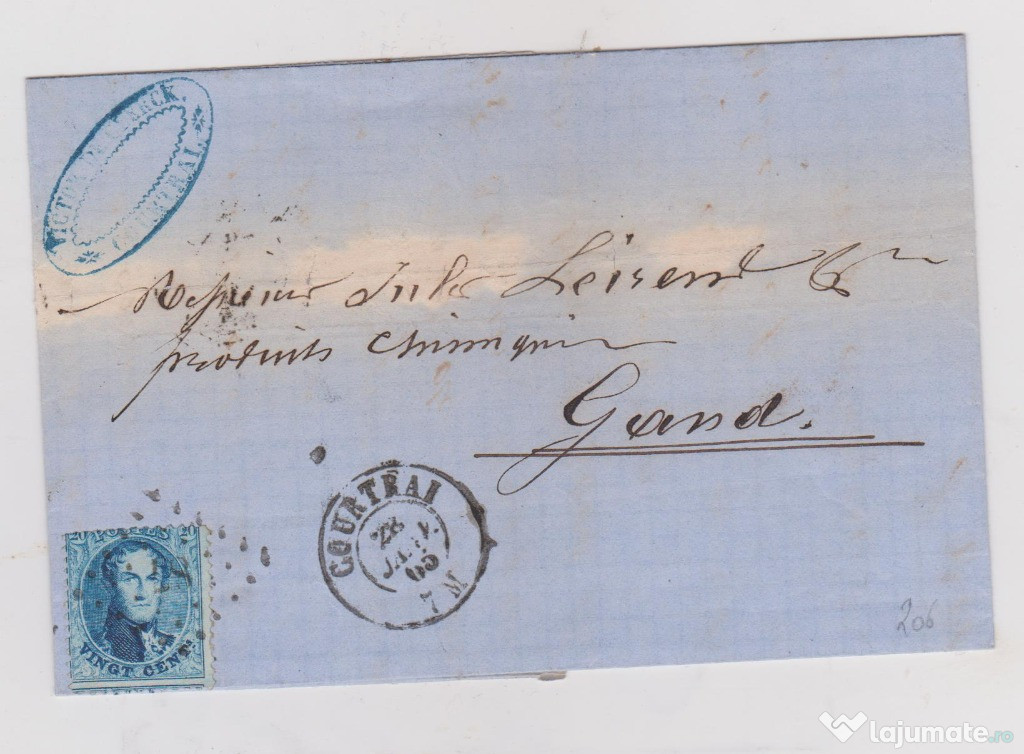 VICTOR
COURTRAI
Messieurs Jules Leirens & Cie
produits chimiques
Gand.
COURTRAI
28
JANV
65
7 M
20 POSTES 20
VINGT CENTS
206
lajumate.ro